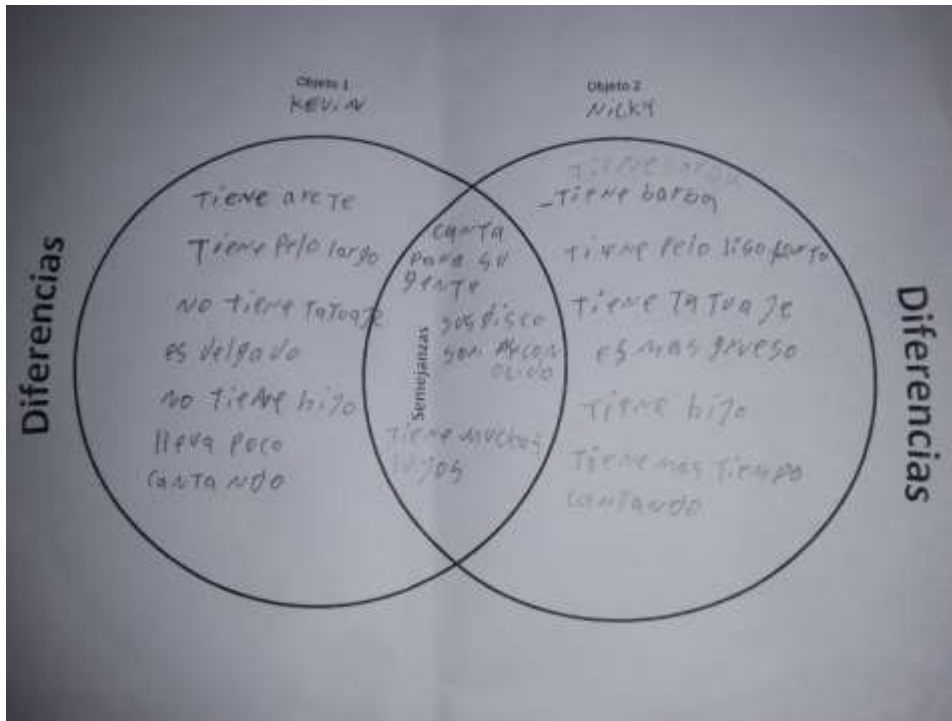 Objeto 1
KEVIN
Objeto 2
NICKY
Diferencias
Tiene arete
Tiene pelo largo
NO tiene tatuaje
es delgado
no tiene hijo
lleva poco
cantando
Semejanzas
canta
para su
gente
sus disco
son
tiene muchos
lujos
Tiene barba
-Tiene barba
tiene pelo liso
tiene tatuaje
es mas grueso
Tiene hijo
Tiene mas tiempo
cantando
Diferencias